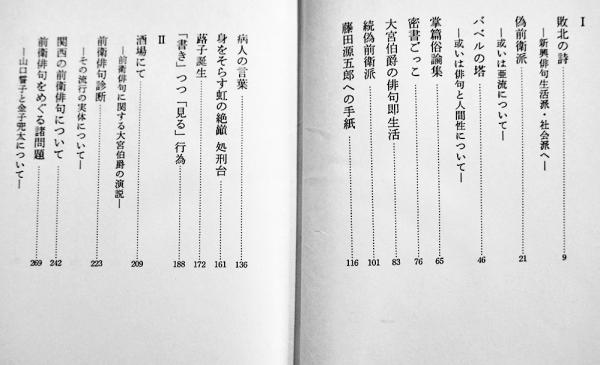 Ⅰ
敗北の詩 9
―新興俳句生活派・社会派へ―
偽前衛派 21
―或いは亜流について―
バベルの塔 46
―或いは俳句と人間性について―
掌篇俗論集 65
密書ごっこ 76
大宮伯爵の俳句即生活 83
続偽前衛派 101
藤田源五郎への手紙 116
病人の言葉 136
身をそらす虹の絶巓 処刑台 161
蕗子誕生 172
「書き」つつ「見る」行為 188
Ⅱ
酒場にて 209
―前衛俳句に関する大宮伯爵の演説―
前衛俳句診断 223
―その流行の実体について―
関西の前衛俳句について 242
前衛俳句をめぐる諸問題 269
―山口誓子と金子兜太について―